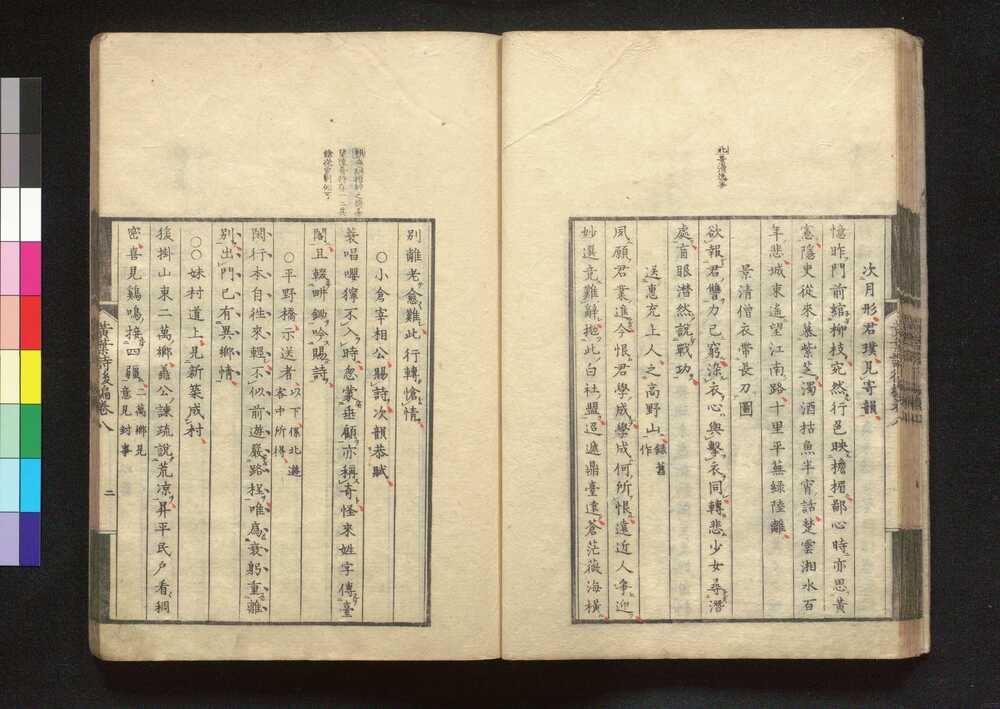 次月形君璞見寄韻
憶昨門前綰柳枝宛然行邑映檐楣鄙心時亦思黃
憲隱史從來慕紫芝濁酒枯魚半宵話楚雲湘水百
年悲城東遙望江南路十里平蕪緑陸離
景清僧衣帶長刀圖
欲報君讐力已窮染衣心與擊衣同轉悲少女尋潛
處盲眼潸然說戰功
送惠充上人之高野山錄舊作
夙願君業進今恨君學成學成何所恨遠近人爭迎
妙選竟難辭抛此白社盟迢遞鼎臺遠蒼茫薇海橫
別離老愈難此行轉愴情
○小倉宰相公賜詩次韻恭賦
蓑唱嚶獰不入時忽蒙垂顧亦稱奇怪來姓字傳臺
閣且輟畊鋤吟賜詩
○平野橋示送者以下係北遊客中所得
閑行本自往來輕不似前遊嚴路程唯爲衰躬重離
別出門已有異鄉情
○○妹村道上見新築成村
猨掛山東二萬鄉善公諫疏說荒凉昇平民戶看稠
密喜見鷄鳴接四疆二萬鄉見意見封事
黃葉詩後編卷八
二